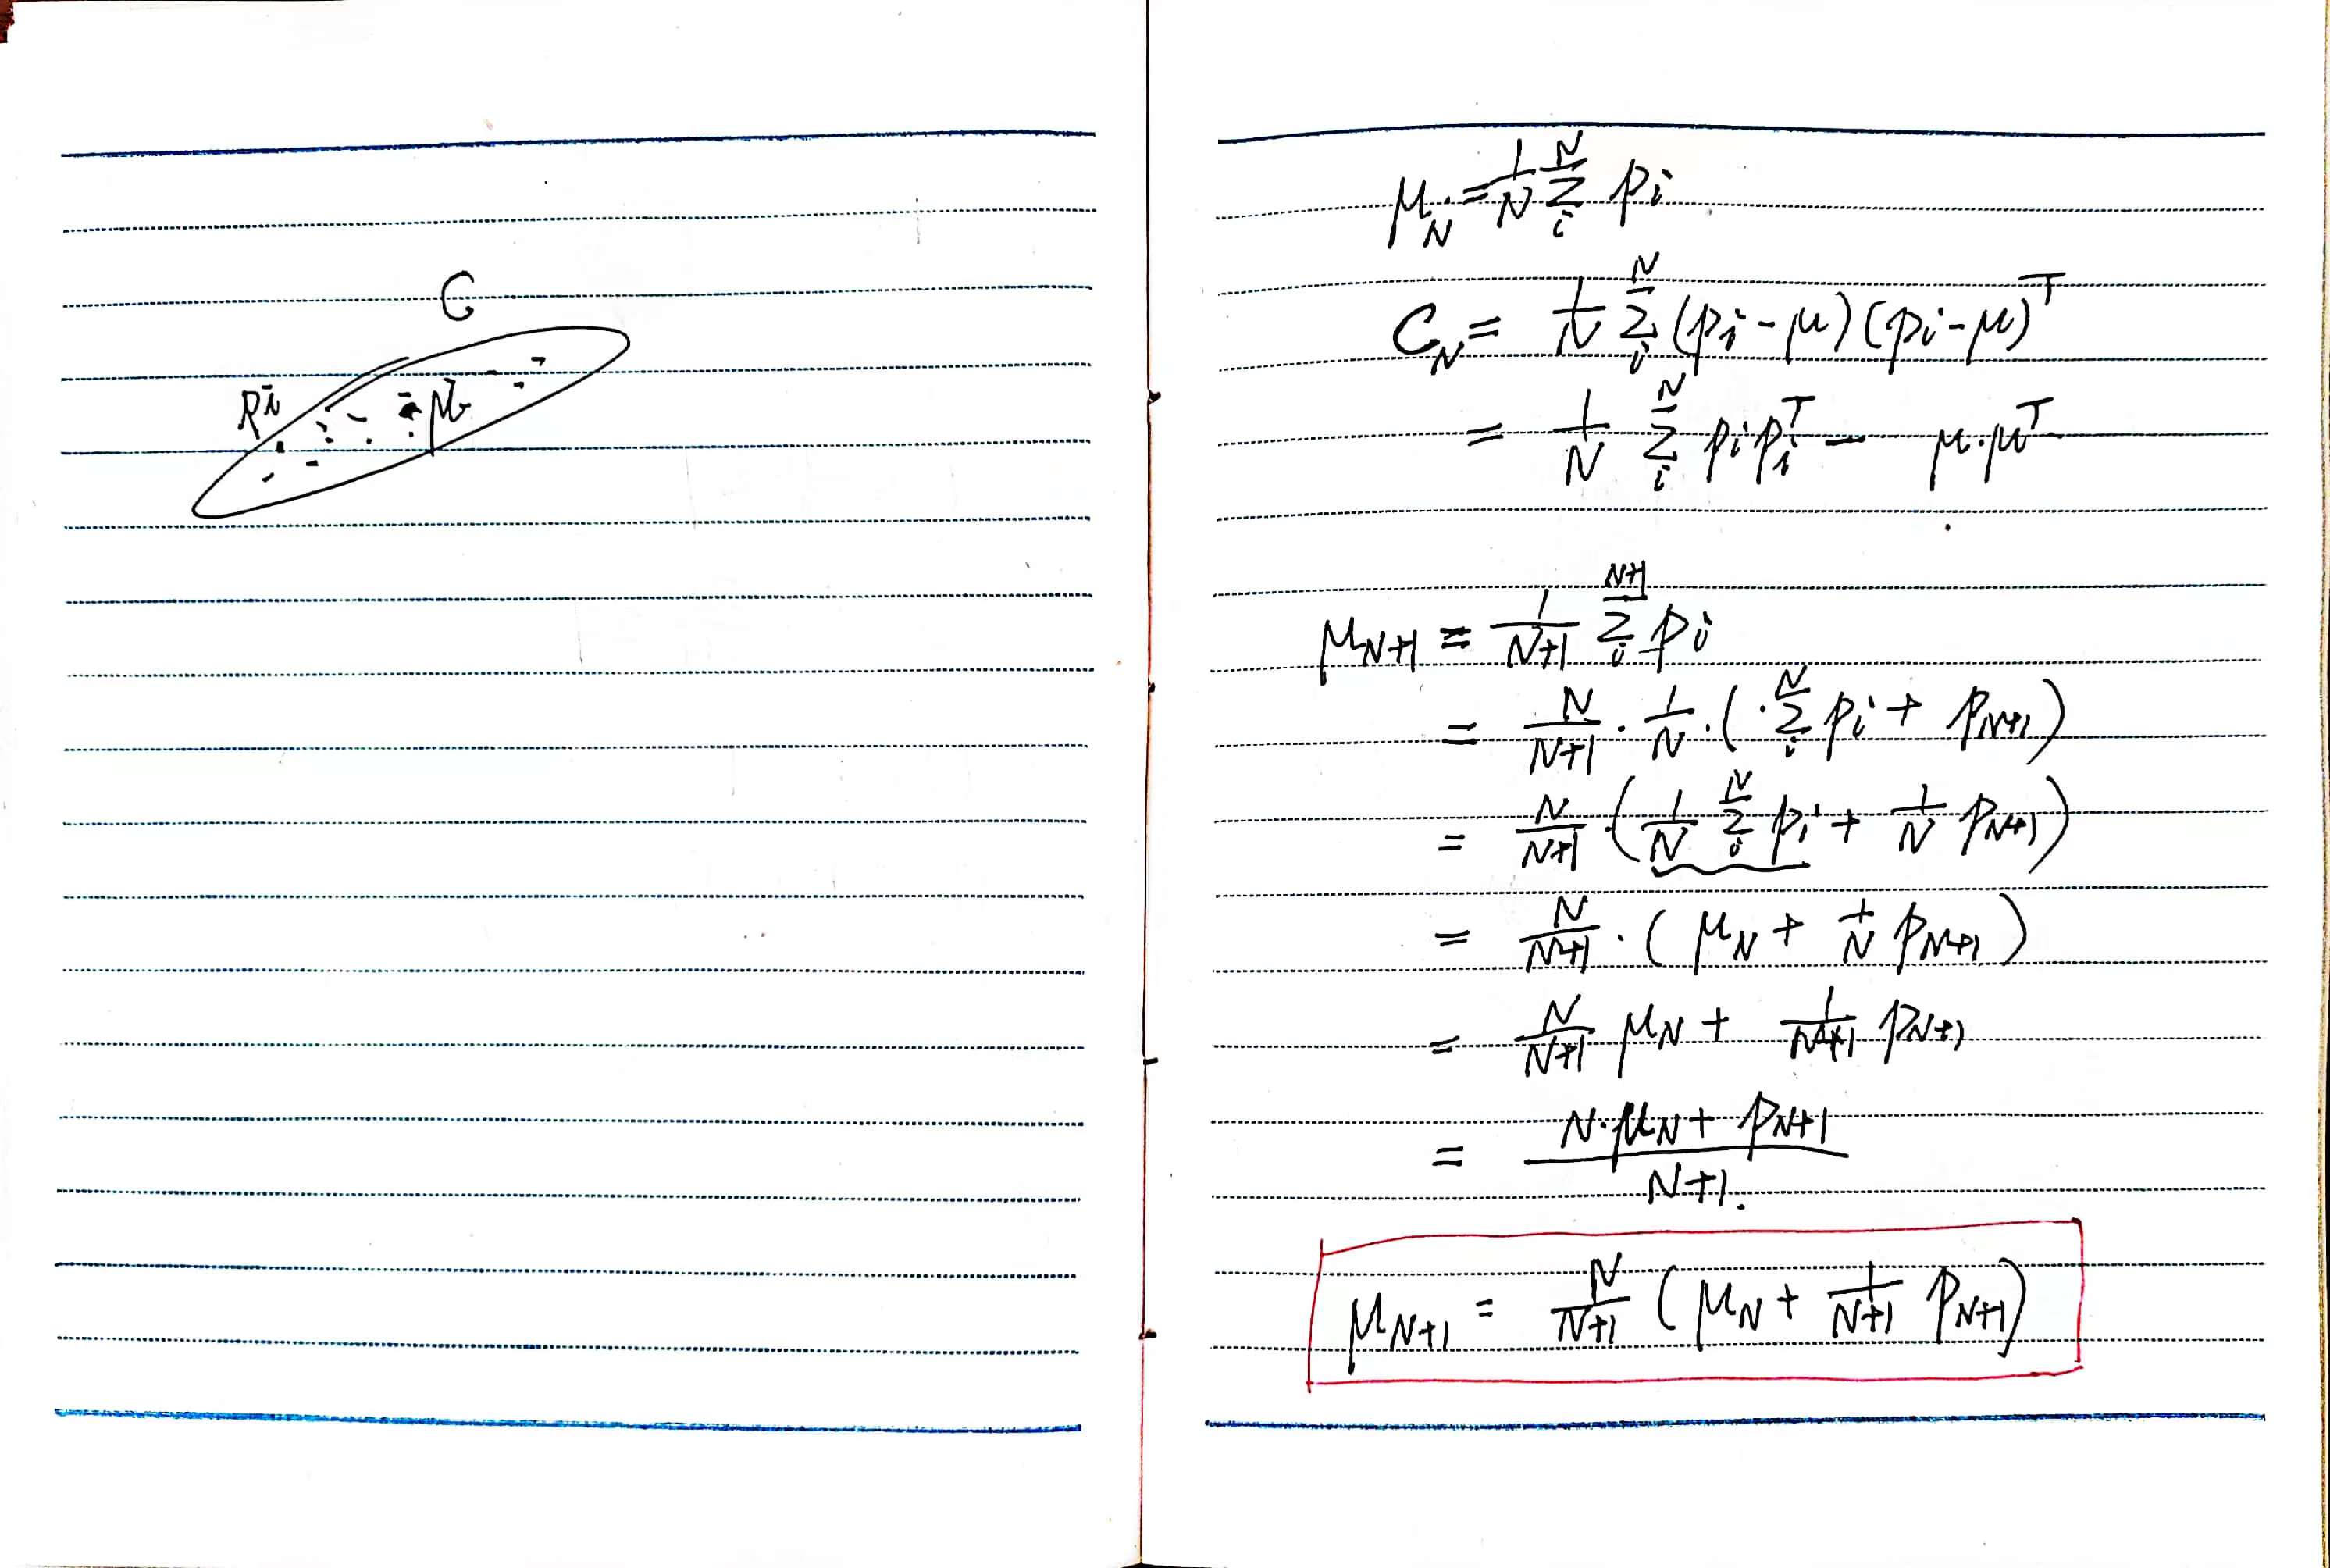 C
pi
μ
μ_N = 1/N Σ_i^N pi
C_N = 1/N Σ_i^N (pi - μ)(pi - μ)^T
= 1/N Σ_i^N pi pi^T - μ·μ^T
μ_{N+1} = 1/(N+1) Σ_i^{N+1} pi
= N/(N+1) · 1/N · (Σ_i^N pi + p_{N+1})
= N/(N+1) · (1/N Σ_i^N pi + 1/N p_{N+1})
= N/(N+1) · (μ_N + 1/N p_{N+1})
= N/(N+1) μ_N + 1/(N+1) p_{N+1}
= (N·μ_N + p_{N+1})/(N+1).
μ_{N+1} = N/(N+1) (μ_N + 1/(N+1) p_{N+1})